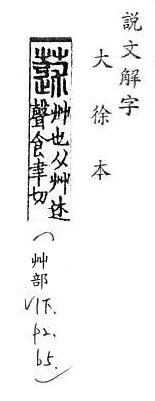 說文解字
大徐本
蒁
艸也从艸述
聲食聿切
(艸部 V1下. p2. b5.)